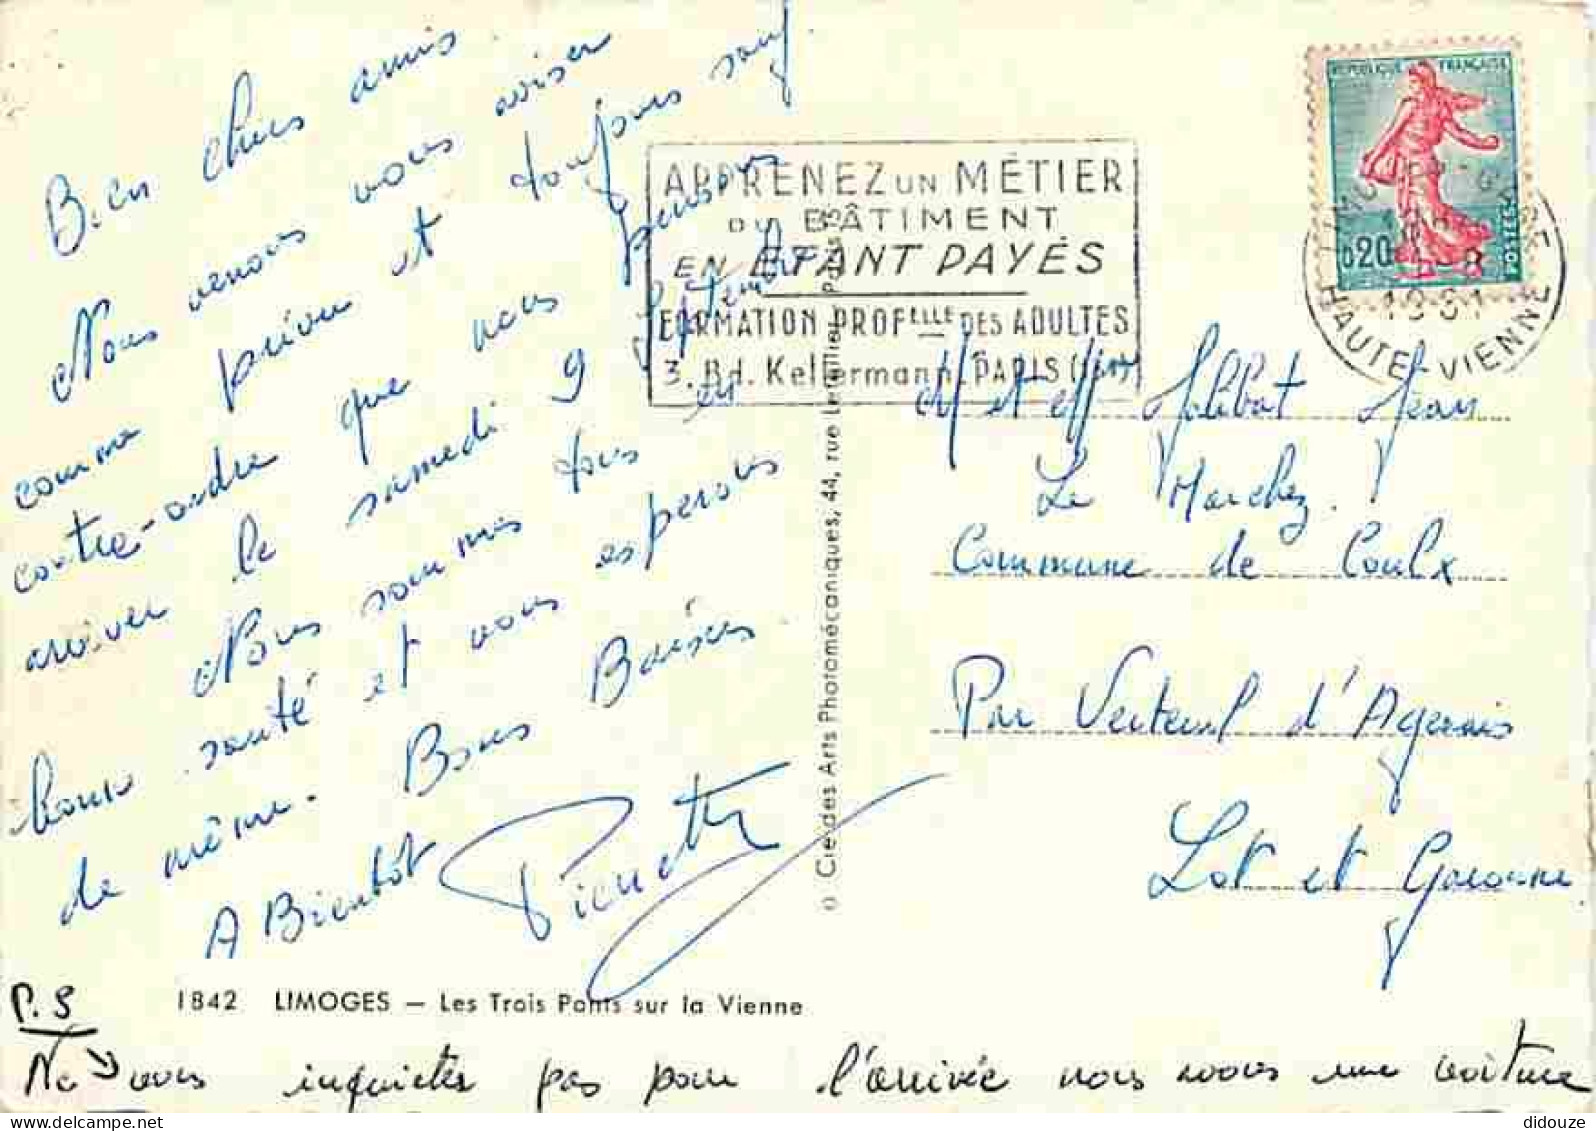 Bien chers amis.
Nous venons vous aviser
comme prévu et toujours sauf
contre-ordre que nous pensons
arriver le samedi 9 septembre
Nous sommes tous en
bonne santé et vous esperons
de même. Bons Baisers
A Bientôt
P.S
Ne vous inquietes pas pour l'arrivée nous avons une voiture
1842 LIMOGES — Les Trois Ponts sur la Vienne
© Cie des Arts Photomécaniques, 44, rue Letellier, Paris
APPRENEZ UN MÉTIER
DU BÂTIMENT
EN ÉTANT PAYÉS
FORMATION PROFELLE DES ADULTES
3. Bd. Kellermann. PARIS
REPUBLIQUE FRANÇAISE
0,20
POSTES
1961
HAUTE VIENNE
M et Mme Jean
Le Marchez.
Commune de Coulx
Par Verteuil d'Agenais
Lot et Garonne
didouze
delcampe.net